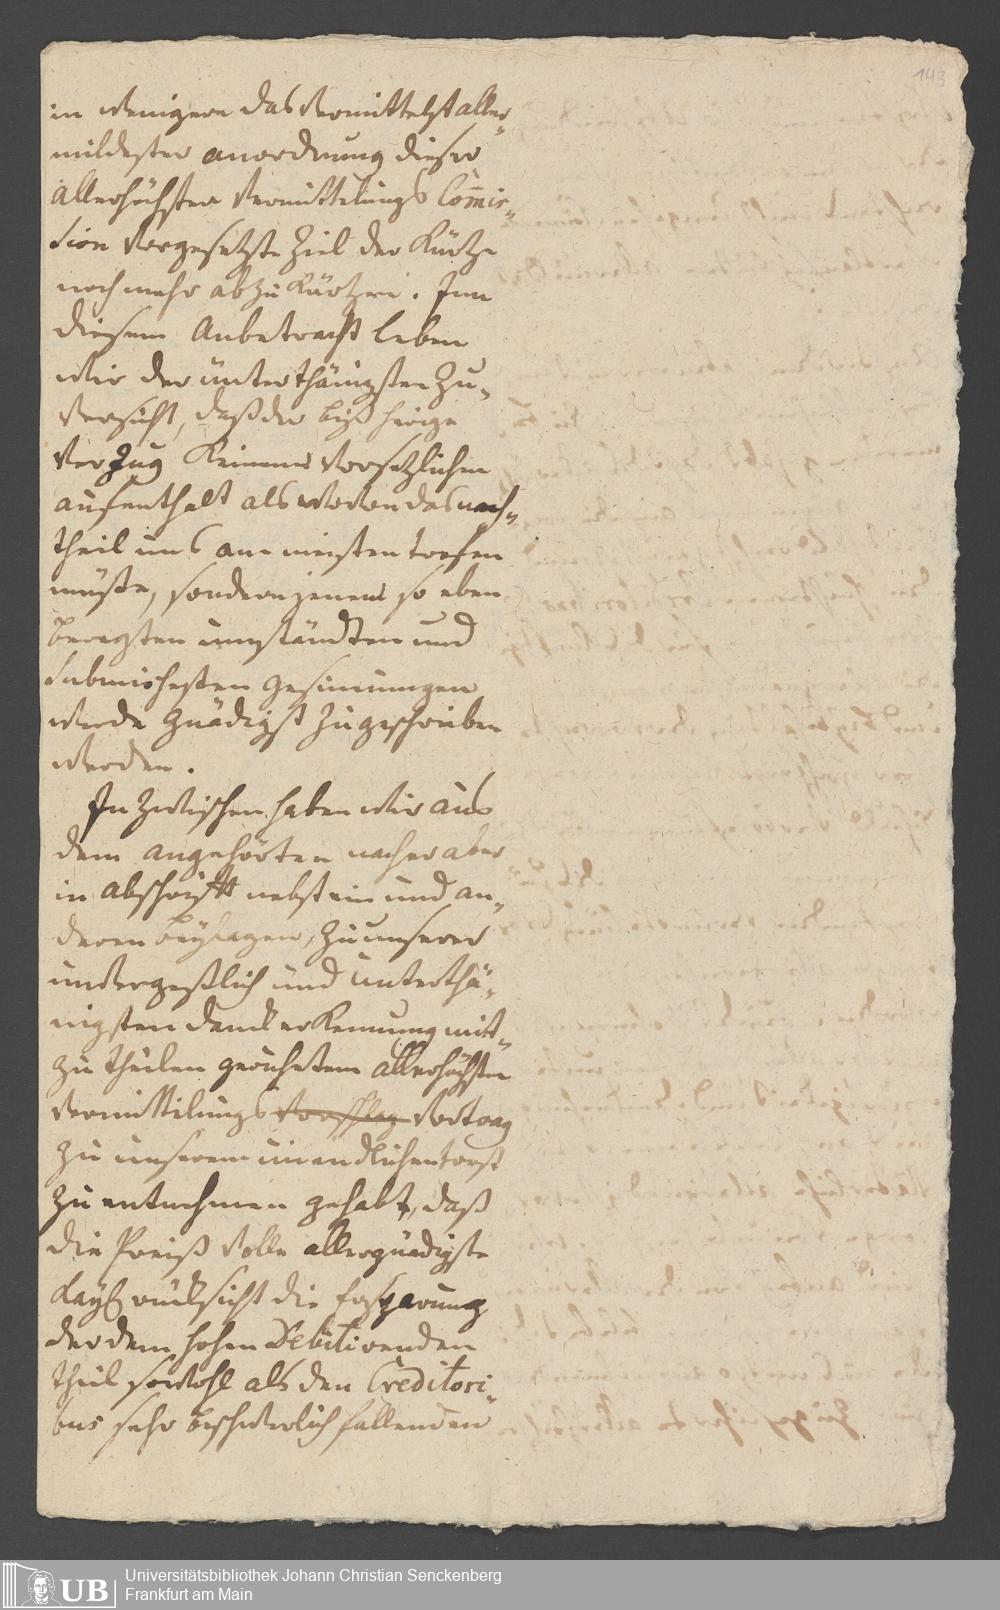 143
in wenigern das Vermittelst aller-
mildester anordnung dieser
allerhöchsten Vermittelungs Com̄is-
sion Vorgesetzte Ziel der Kürtze
noch mehr abzu Kürtzen. Inn
diesem Anbetracht leben
wir der unterthänigsten Zu-
versicht, daß der biß herige
Verzug Keinem Vorsetzlichen
aufenthalt als wovon das nach-
theil uns am meisten trefen
müste, sondern jenen so eben
beregten umständten und
submissesten gesinnungen
werde gnädigst zugeschrieben
werden.
In zwischen haben wir aus
dem angehörten nacher aber
in abschrifft nebst ein und an-
deren beylagen, zu unserer
unvergeßlich und unterthä-
nigsten danck erKennung mit-
zu theilen geruhetem allerhöchsten
Vermittelungs Vortrag
zu unserem unendlichen trost
zu entnehmen gehabt, daß
die Preiß Volle allergnädigste
Kayß rücksicht die Ersparung
der dem hohen Debitirenden
theil sowohl als den Creditori-
bus sehr beschwerlich fallenden
UB
Universitätsbibliothek Johann Christian Senckenberg
Frankfurt am Main